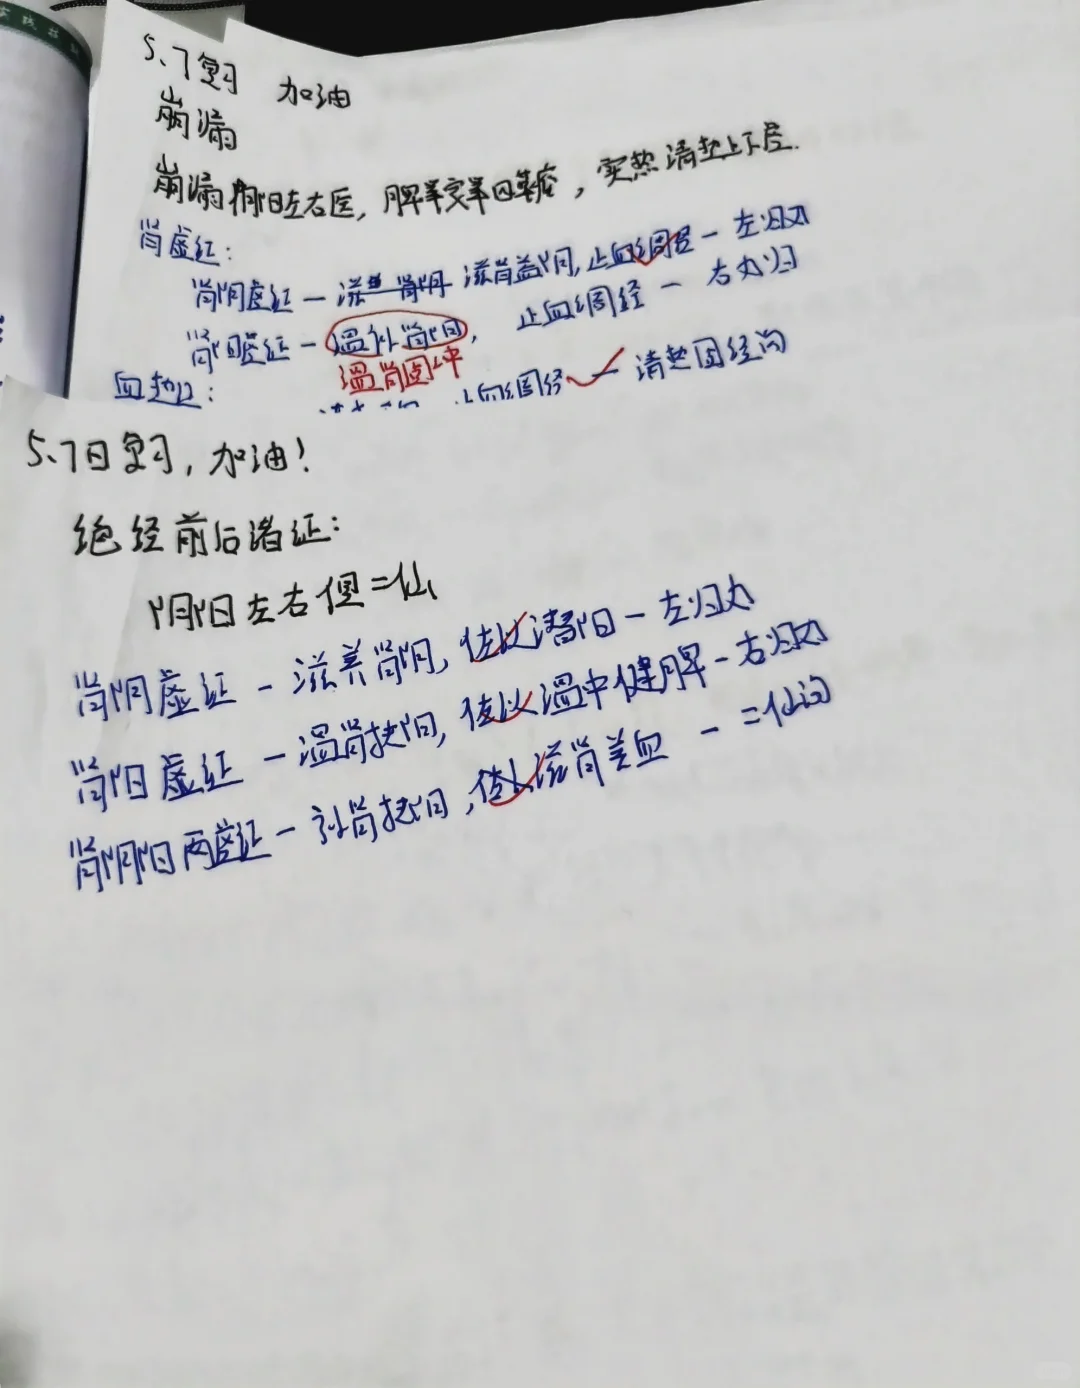 5.7复习 加油
崩漏
崩漏阴阳左右医，脾 ，实热清热上下层.
肾虚证：
肾阴虚证 — 滋肾益阴，止血调经 — 左归丸
肾阳虚证 — 温补肾阳，止血调经 — 右丸归
温肾固冲
血热证：
止血调经 — 清热固经汤
5.7日复习，加油！
绝经前后诸证：
阴阳左右便二仙
肾阴虚证 — 滋养肾阴，佐以潜阳 — 左归丸
肾阳虚证 — 温肾扶阳，佐以温中健脾 — 右归丸
肾阴阳两虚证 — 补肾扶阳，佐以滋肾养血 — 二仙汤